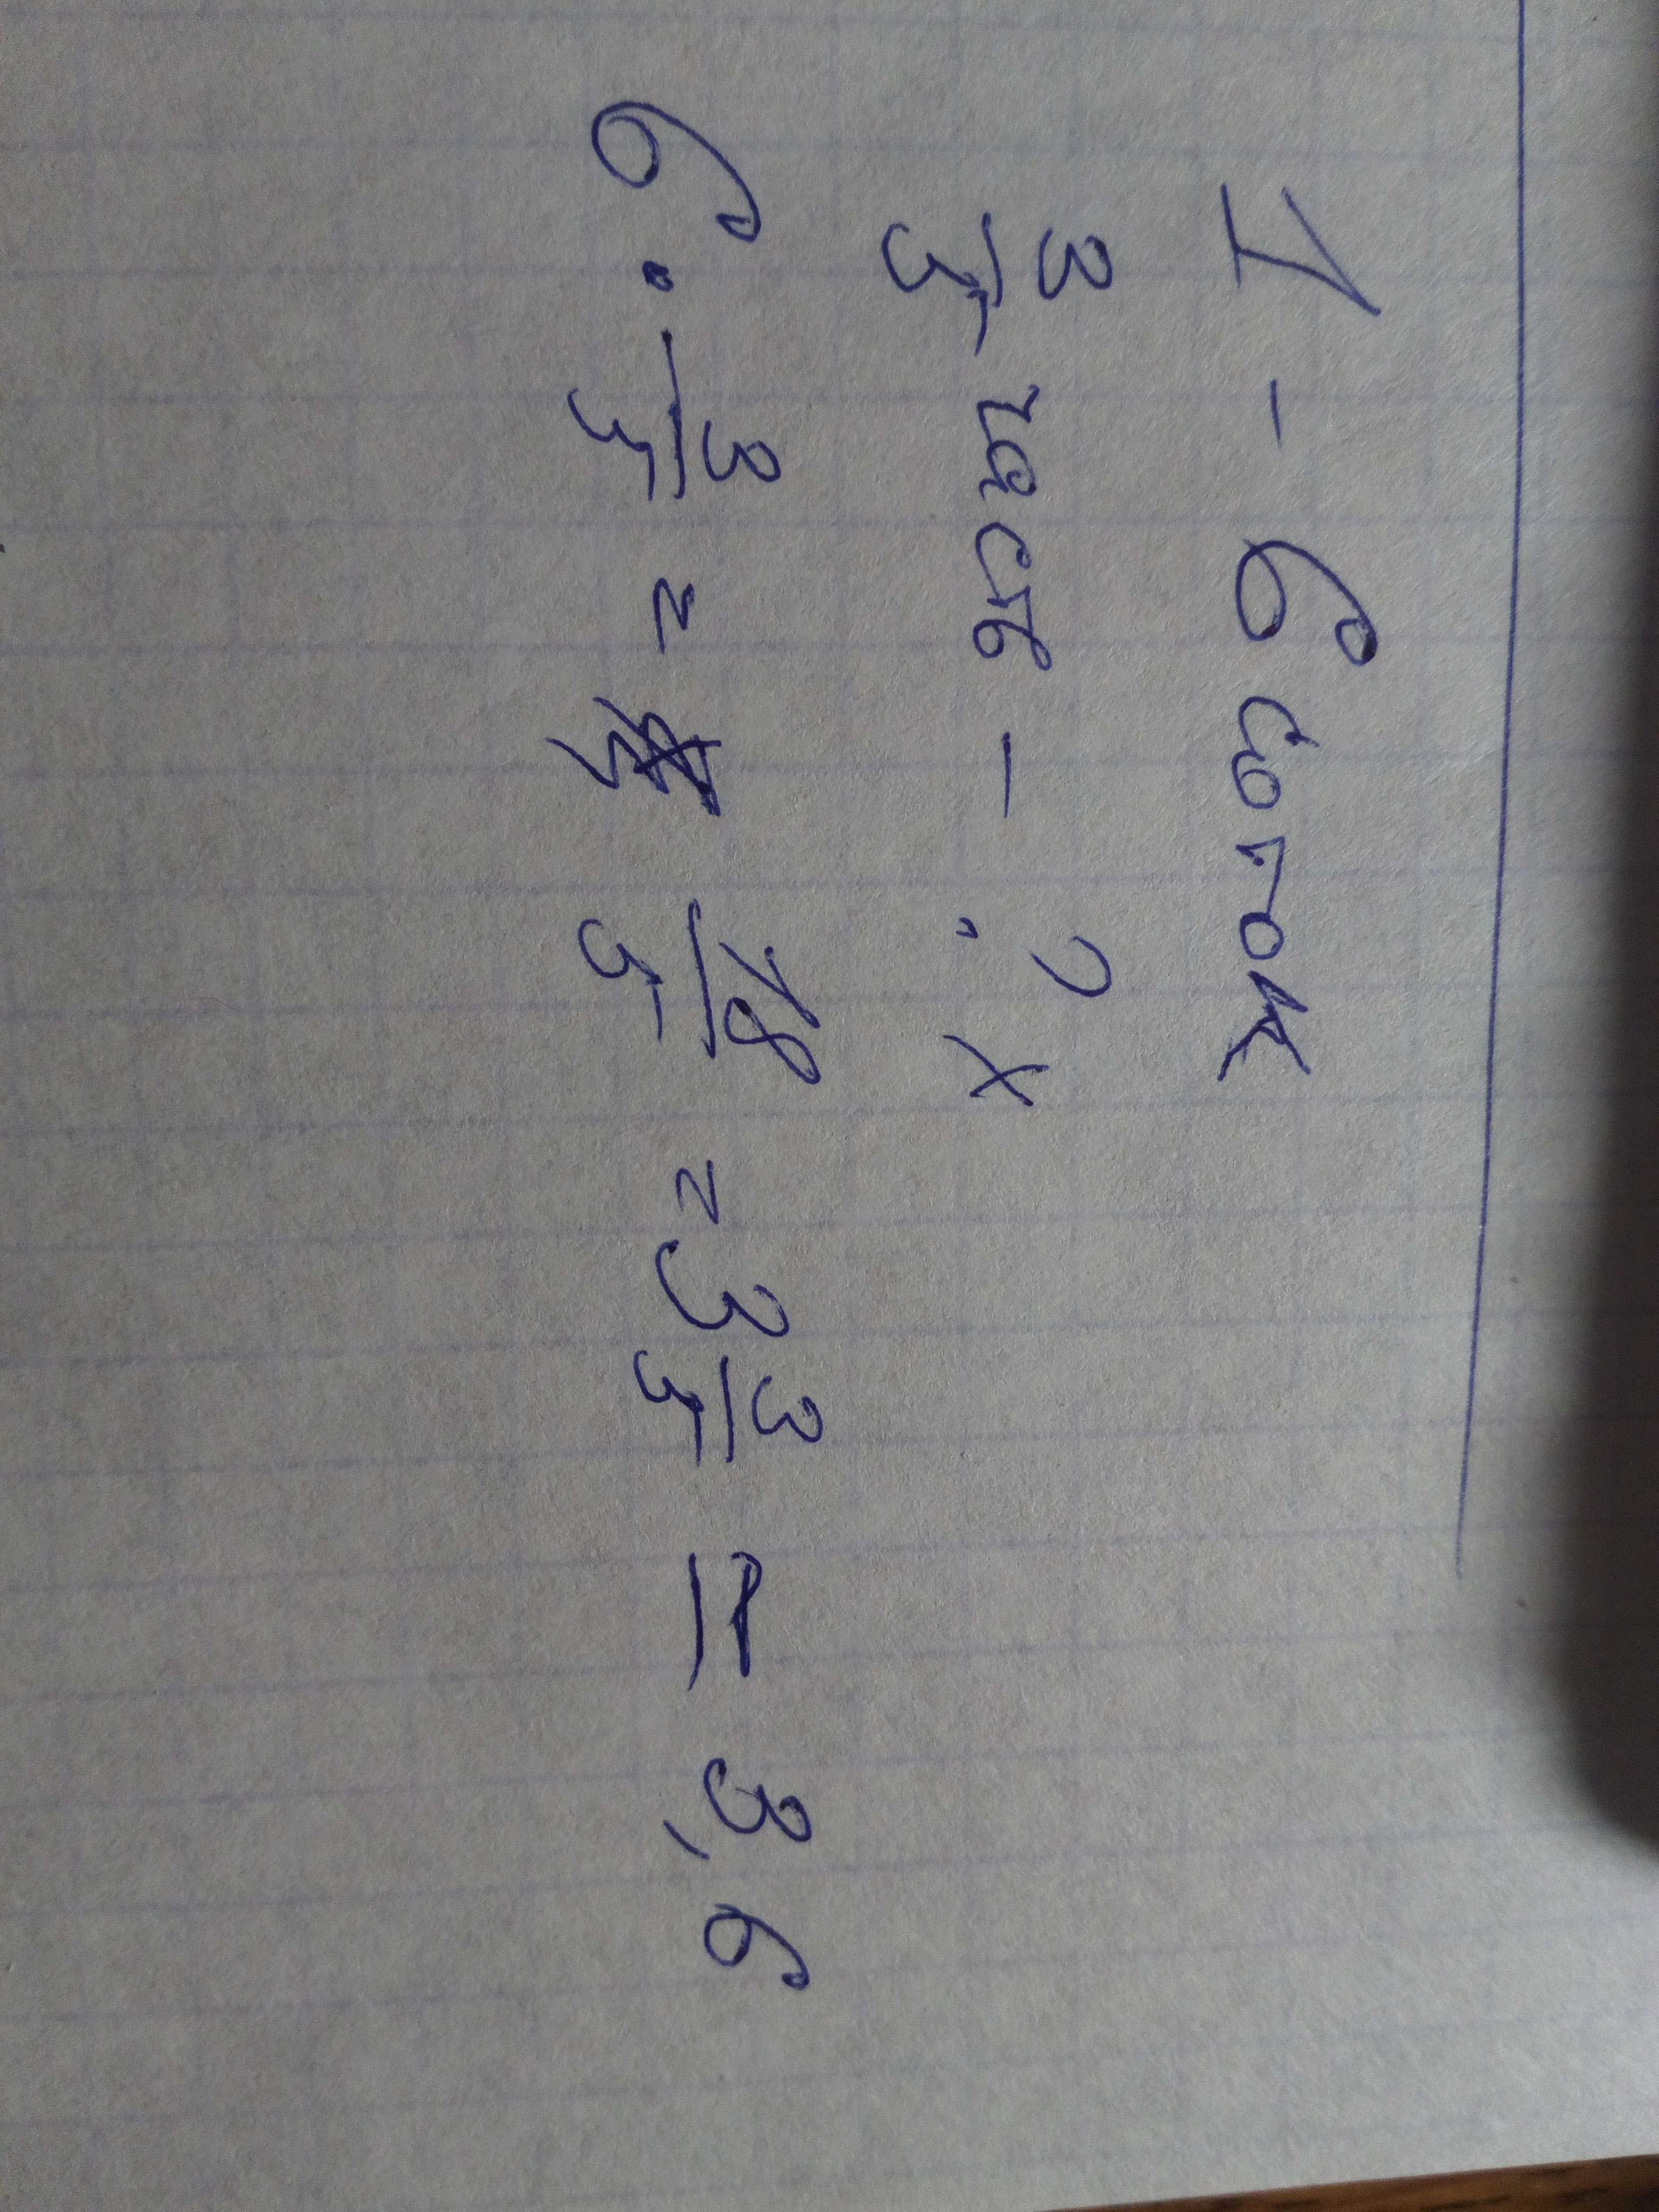 1 - 6 соток
3/5 часть - ? х
6 · 3/5 = 18/5 = 3 3/5 = 3,6